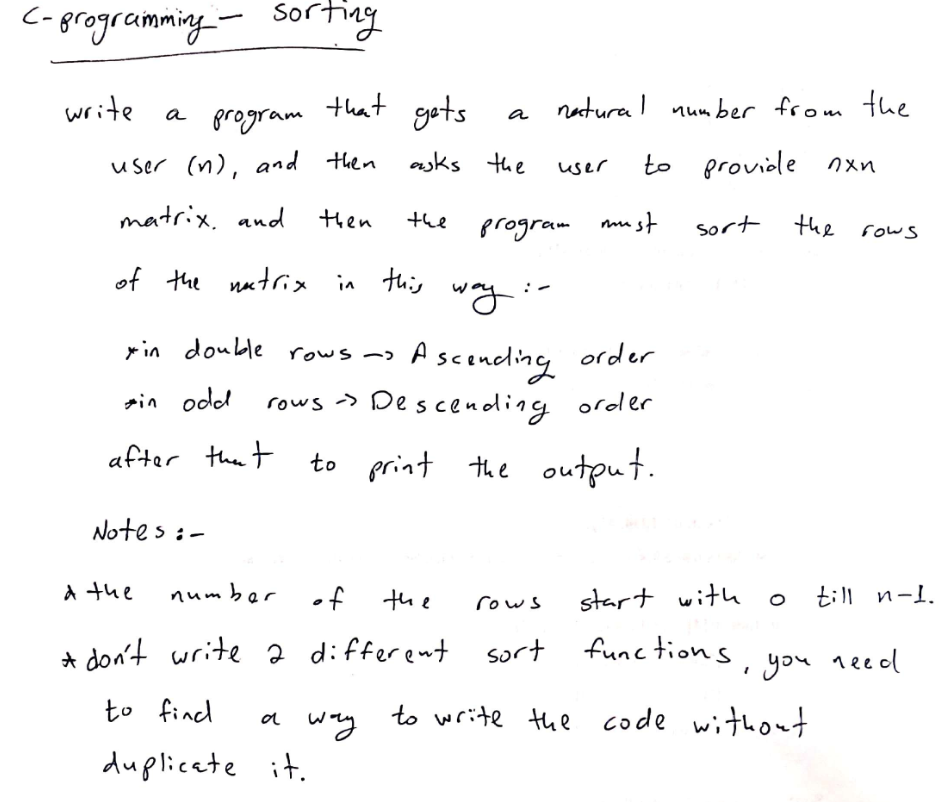 C-programming - sorting
write a program that gets a natural number from the
user (n), and then asks the user to provide nxn
matrix. and then the program must sort the rows
of the matrix in this way :-
*in double rows -> Ascending order
*in odd rows -> Descending order
after that to print the output.
Notes :-
* the number of the rows start with 0 till n-1.
* don't write 2 different sort functions, you need
to find a way to write the code without
duplicate it.